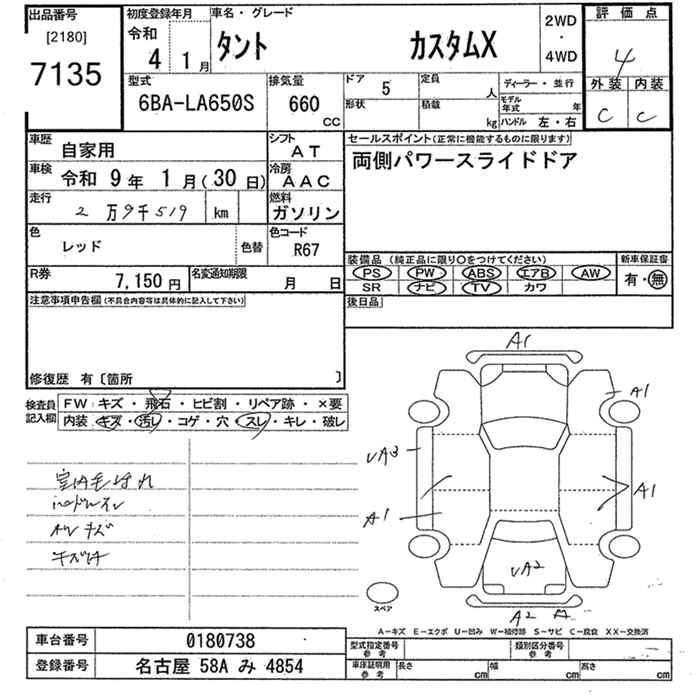 出品番号
[2180]
7135
初度登録年月
令和
4 1月
車名・グレード
タント カスタムX
2WD
・
4WD
評価点
4
外装 内装
C C
型式
6BA-LA650S
排気量
660
CC
ドア 5
形状
定員 人
積載 kg
ディーラー・並行
モデル年式 年
ハンドル 左・右
車歴 自家用
シフト AT
車検 令和 9年 1月(30日)
冷房 AAC
走行 2万9千519 km
燃料 ガソリン
色 レッド 色替
色コード R67
R券 7,150円
名変通知期限 月 日
セールスポイント(正常に機能するものに限ります)
両側パワースライドドア
装備品(純正品に限り○をつけてください)
PS PW ABS エアB AW
SR ナビ TV カワ
新車保証書
有・無
後日品
注意事項申告欄(不具合内容等は具体的に記入して下さい)
修復歴 有〔箇所 〕
検査員記入欄
FW キズ・飛石・ヒビ割・リペア跡・×要
内装 キズ・汚レ・コゲ・穴・スレ・キレ・破レ
AW キズ
キズ
A1
A1
A1
A1
A2
A2
スペア
A-キズ E-エクボ U-凹み W-補修跡 S-サビ C-腐食 XX-交換済
車台番号 0180738
登録番号 名古屋 58A み 4854
型式指定番号 参考
類別区分番号 参考
車庫証明用 参考
長さ cm
幅 cm
高さ cm